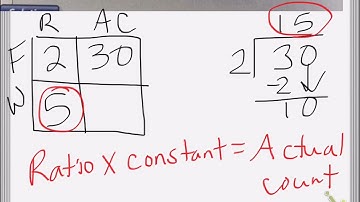 R AC
F 2 30
W 5
15
2 30
-2
10
Ratio X constant = Actual
count